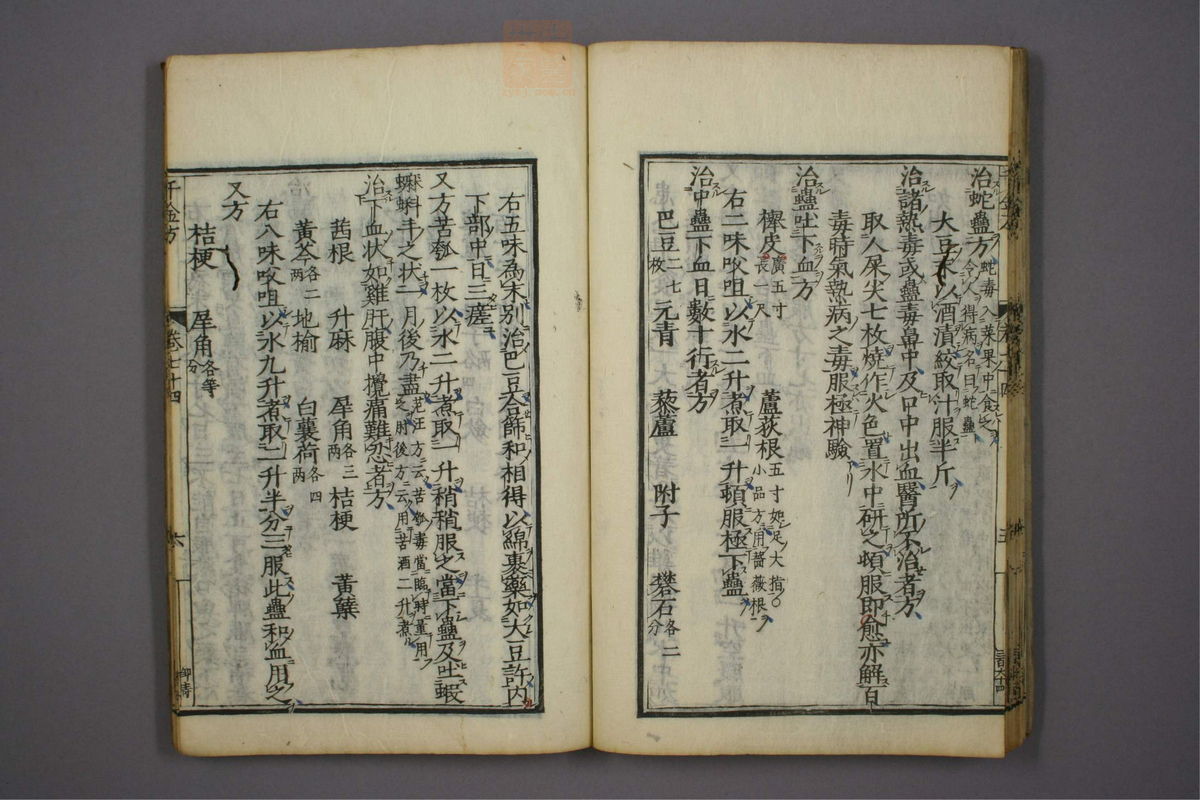 治蛇蠱方蛇毒入菜果中食之令人得病名曰蛇蠱
大豆末以酒漬絞取汁服半斤
治諸熱毒或蠱毒鼻中及口中出血醫所不治者方
取人屎尖七枚燒作火色置水中研之頓服即愈亦解百
毒時氣熱病之毒服極神驗
治蠱吐下血方
櫸皮廣五寸長一尺 蘆荻根五寸如足大指○小品方用薔薇根
右二味㕮咀以水二升煮取一升頓服極下蠱
治中蠱下血日數十行者方
巴豆二七枚 元青 藜蘆 附子 礬石各二分
右五味為末別治巴豆合篩和相得以綿裹藥如大豆許内
下部中日三瘥
又方苦瓠一枚以水二升煮取一升稍稍服之當下蠱及吐蝦
蟇蝌蚪之状一月後乃盡范汪方云苦瓠毒當臨時量用之肘後方云用苦酒二升煮
治下血状如雞肝腹中攪痛難忍者方
茜根 升麻 犀角各三兩 桔梗 黃蘗
黃芩各二兩 地榆 白蘘荷各四兩
右八味㕮咀以水九升煮取二升半分三服此蠱和血用之
又方
桔梗 犀角各等分
千金方
卷七十四
六